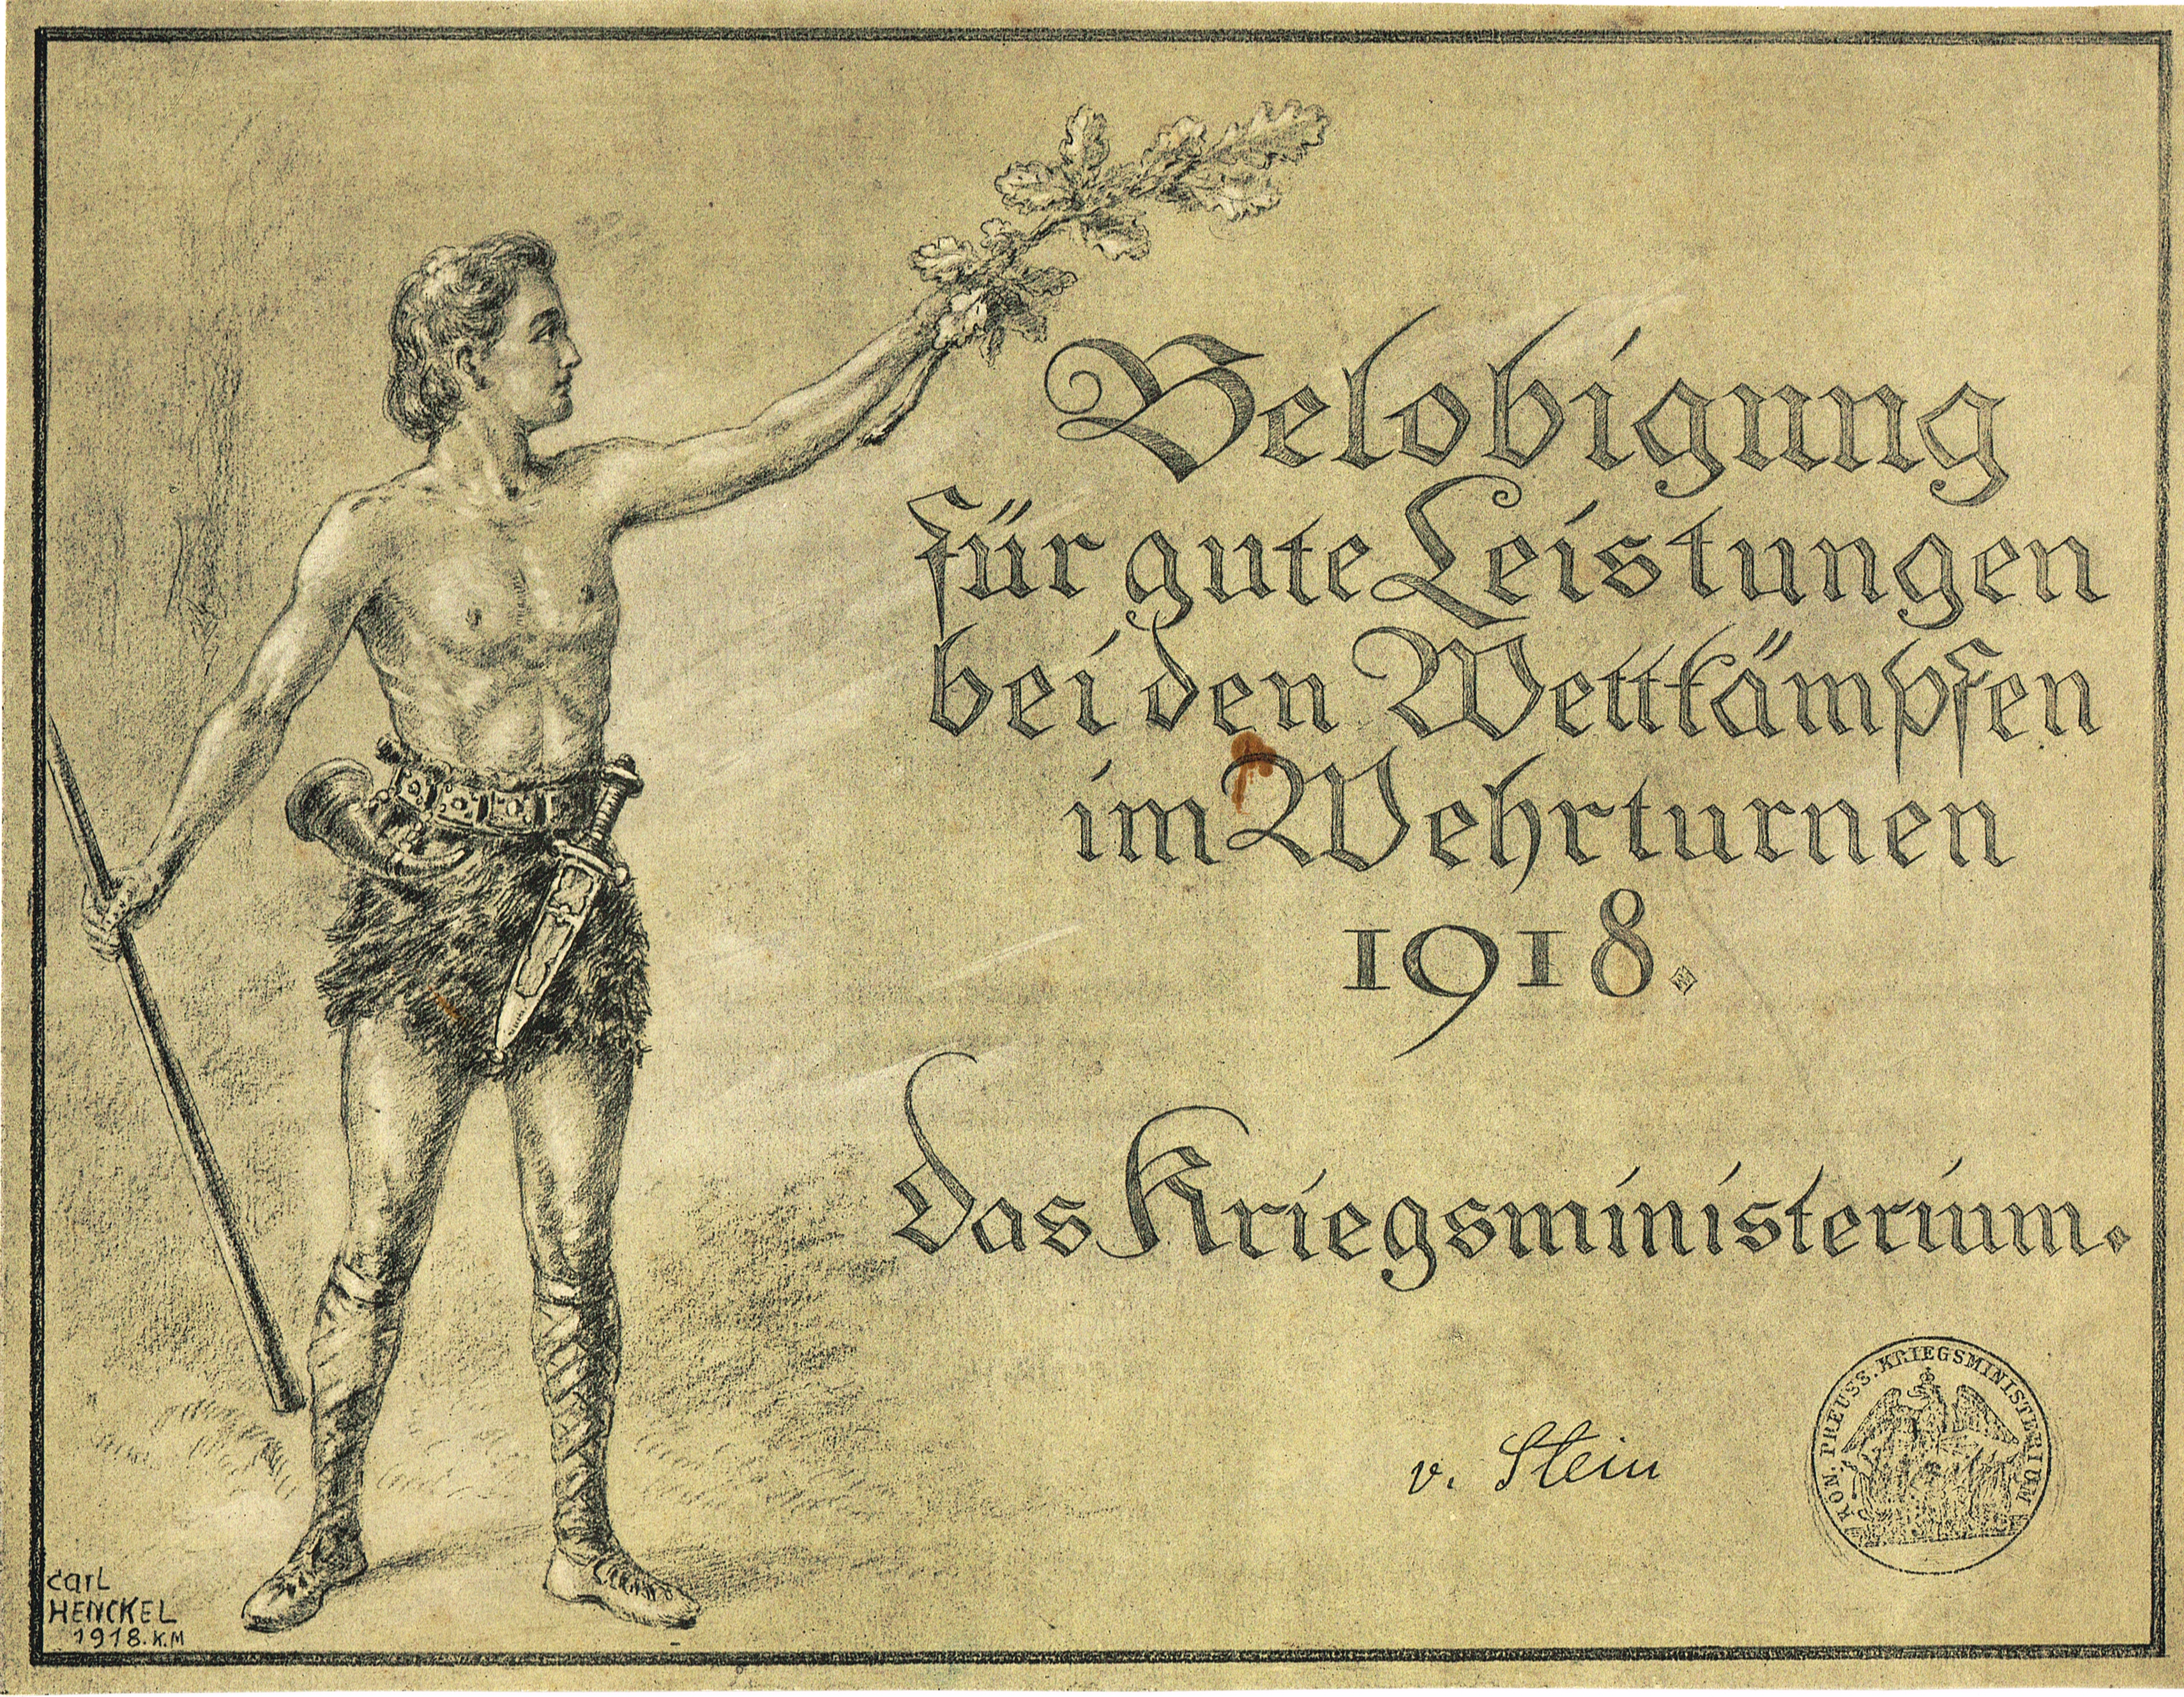 Belobigung
für gute Leistungen
bei den Wettkämpfen
im Wehrturnen
1918.
Das Kriegsministerium.
v. Stein
KÖN. PREUSS. KRIEGSMINISTERIUM
Carl
HENCKEL
1918. K.M